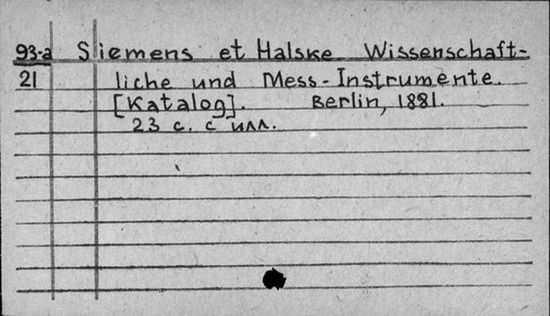 93-a Siemens et Halske Wissenschaft-
21 liche und Mess-Instrumente.
[Katalog]. Berlin, 1881.
23 с. с илл.